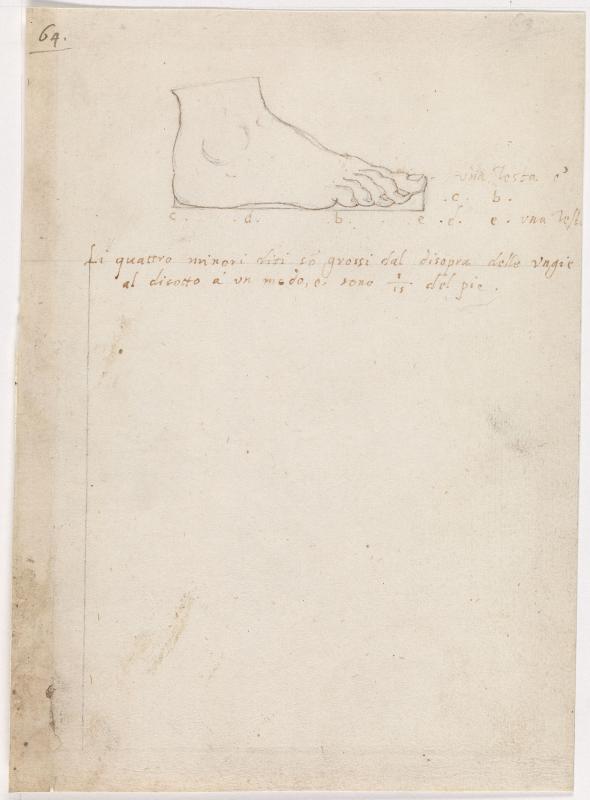 64.
una testa e'
.c. b.
c. .d. .b. e. .d. e. una test
Li quattro minori diti sō grossi dal disopra delle ungie
al disotto a un modo, e sono 1/15 del pie.